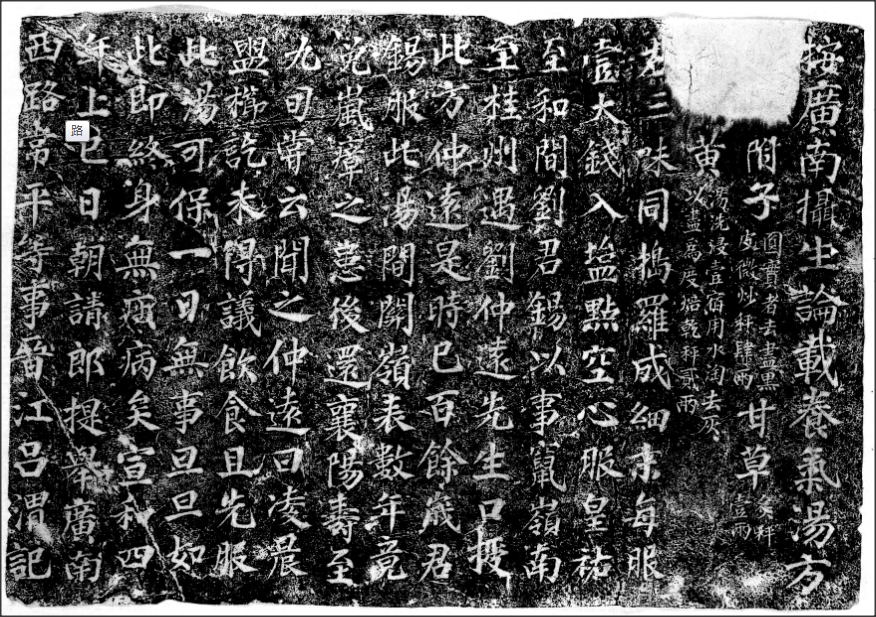 按廣南攝生論載養氣湯方
附子圓實者去盡黑皮微炒秤肆兩甘草炙秤壹兩
黃湯洗浸壹宿用水淘去灰以盡為度焙乾秤貳兩
右三味同搗羅成細末每服
壹大錢入塩點空心服皇祐
至和間劉君錫以事竄嶺南
至桂州遇劉仲遠先生口授
此方仲遠是時已百餘歲君
錫服此湯間關嶺表數年竟
免嵐瘴之患後還襄陽壽至
九旬嘗云聞之仲遠曰凌晨
盥櫛訖未得議飲食且先服
此湯可保一日無事旦旦如
此即終身無疾病矣宣和四
年上巳日朝請郎提舉廣南
西路常平等事晉江呂渭記
路